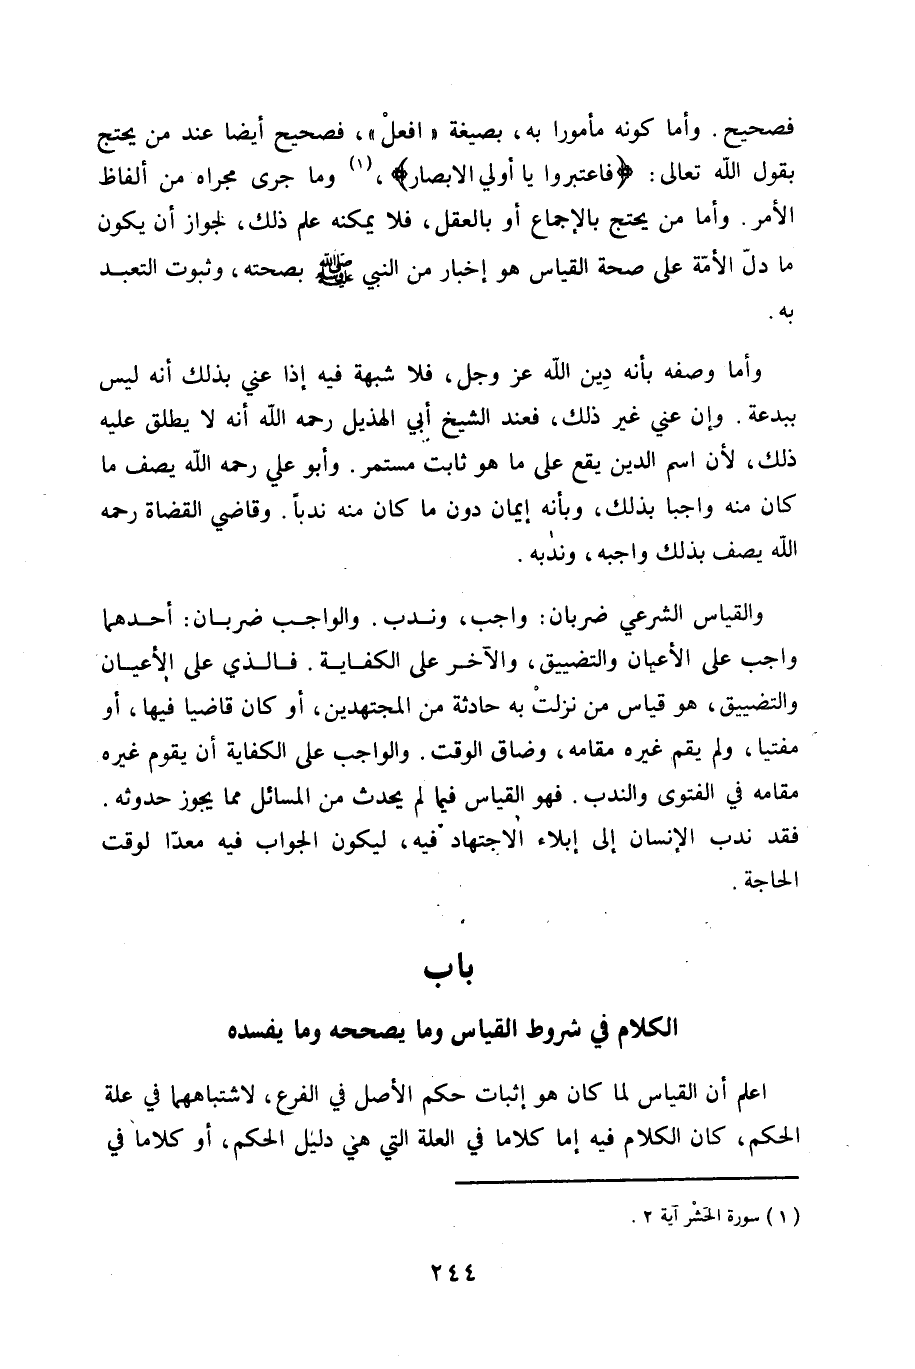 فصحيح. وأما كونه مأمورا به، بصيغة «افعلْ»، فصحيح أيضا عند من يحتج
بقول الله تعالى: ﴿فاعتبروا يا أولي الابصار﴾،(١) وما جرى مجراه من ألفاظ
الأمر. وأما من يحتج بالإجماع أو بالعقل، فلا يمكنه علم ذلك، لجواز أن يكون
ما دلّ الأمّة على صحة القياس هو إخبار من النبي ﷺ بصحته، وثبوت التعبد
به.
وأما وصفه بأنه دِين الله عز وجل، فلا شبهة فيه إذا عني بذلك أنه ليس
ببدعة. وإن عني غير ذلك، فعند الشيخ أبي الهذيل رحمه الله أنه لا يطلق عليه
ذلك، لأن اسم الدين يقع على ما هو ثابت مستمر. وأبو علي رحمه الله يصف ما
كان منه واجبا بذلك، وبأنه إيمان دون ما كان منه ندباً. وقاضي القضاة رحمه
الله يصف بذلك واجبه، وندبه.
والقياس الشرعي ضربان: واجب، وندب. والواجب ضربان: أحدهما
واجب على الأعيان والتضييق، والآخر على الكفاية. فالذي على الأعيان
والتضييق، هو قياس من نزلتْ به حادثة من المجتهدين، أو كان قاضيا فيها، أو
مفتيا، ولم يقم غيره مقامه، وضاق الوقت. والواجب على الكفاية أن يقوم غيره
مقامه في الفتوى والندب. فهو القياس فيما لم يحدث من المسائل مما يجوز حدوثه.
فقد ندب الإنسان إلى إبلاء الاجتهاد فيه، ليكون الجواب فيه معدّا لوقت
الحاجة.
باب
الكلام في شروط القياس وما يصححه وما يفسده
اعلم أن القياس لما كان هو إثبات حكم الأصل في الفرع، لاشتباههما في علة
الحكم، كان الكلام فيه إما كلاما في العلة التي هي دليل الحكم، أو كلاما في
(١) سورة الحَشْر آية ٢.
٢٤٤